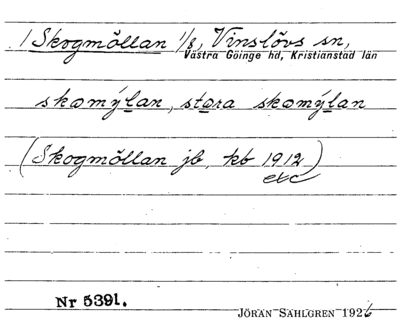 /Skogmöllan 1/8, Vinslövs sn,
Västra Göinge hd, Kristianstad län
skomýlan, stora skomýlan
(Skogmöllan jb, kb 1912)
etc
Nr 5391.
JÖRAN SAHLGREN 1926